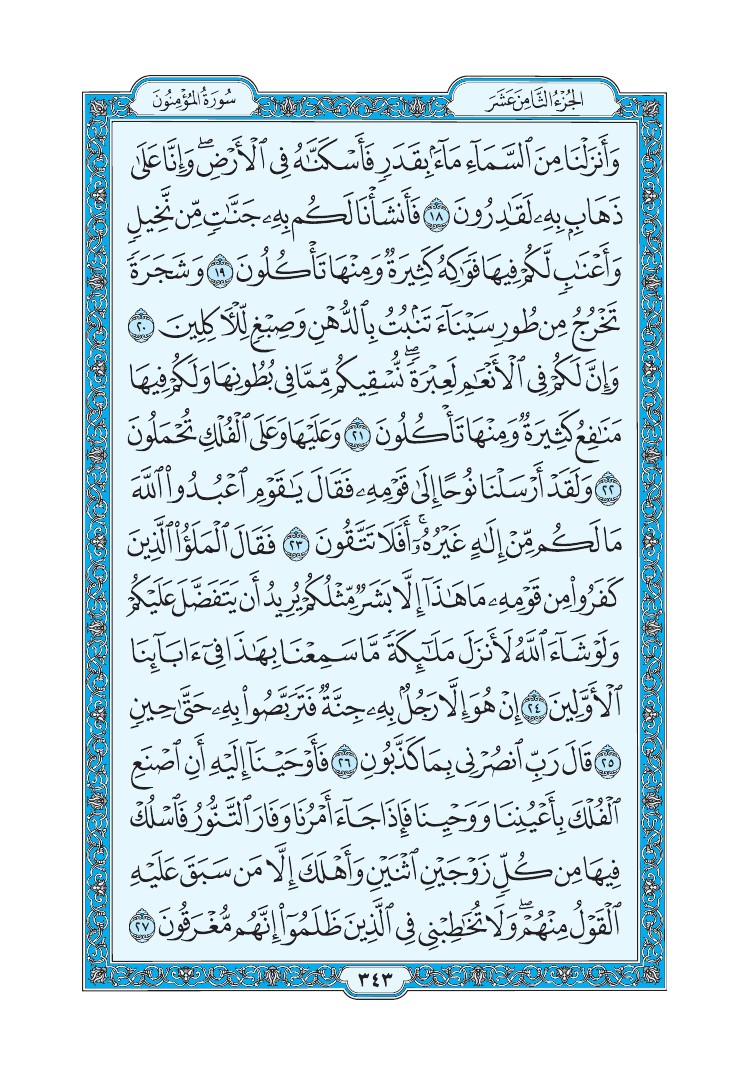 الجُزْءُ الثَّامِنَ عَشَرَ
سُورَةُ المُؤْمِنُونَ
وَأَنزَلْنَا مِنَ ٱلسَّمَآءِ مَآءًۢ بِقَدَرٍ فَأَسْكَنَّٰهُ فِى ٱلْأَرْضِۖ وَإِنَّا عَلَىٰ
ذَهَابٍۭ بِهِۦ لَقَٰدِرُونَ ١٨ فَأَنشَأْنَا لَكُم بِهِۦ جَنَّٰتٍ مِّن نَّخِيلٍ
وَأَعْنَٰبٍ لَّكُمْ فِيهَا فَوَٰكِهُ كَثِيرَةٌ وَمِنْهَا تَأْكُلُونَ ١٩ وَشَجَرَةً
تَخْرُجُ مِن طُورِ سَيْنَآءَ تَنۢبُتُ بِٱلدُّهْنِ وَصِبْغٍ لِّلْءَاكِلِينَ ٢٠
وَإِنَّ لَكُمْ فِى ٱلْأَنْعَٰمِ لَعِبْرَةًۖ نُّسْقِيكُم مِّمَّا فِى بُطُونِهَا وَلَكُمْ فِيهَا
مَنَٰفِعُ كَثِيرَةٌ وَمِنْهَا تَأْكُلُونَ ٢١ وَعَلَيْهَا وَعَلَى ٱلْفُلْكِ تُحْمَلُونَ
٢٢ وَلَقَدْ أَرْسَلْنَا نُوحًا إِلَىٰ قَوْمِهِۦ فَقَالَ يَٰقَوْمِ ٱعْبُدُوا۟ ٱللَّهَ
مَا لَكُم مِّنْ إِلَٰهٍ غَيْرُهُۥٓۚ أَفَلَا تَتَّقُونَ ٢٣ فَقَالَ ٱلْمَلَؤُا۟ ٱلَّذِينَ
كَفَرُوا۟ مِن قَوْمِهِۦ مَا هَٰذَآ إِلَّا بَشَرٌ مِّثْلُكُمْ يُرِيدُ أَن يَتَفَضَّلَ عَلَيْكُمْ
وَلَوْ شَآءَ ٱللَّهُ لَأَنزَلَ مَلَٰٓئِكَةً مَّا سَمِعْنَا بِهَٰذَا فِىٓ ءَابَآئِنَا
ٱلْأَوَّلِينَ ٢٤ إِنْ هُوَ إِلَّا رَجُلٌۢ بِهِۦ جِنَّةٌ فَتَرَبَّصُوا۟ بِهِۦ حَتَّىٰ حِينٍ
٢٥ قَالَ رَبِّ ٱنصُرْنِى بِمَا كَذَّبُونِ ٢٦ فَأَوْحَيْنَآ إِلَيْهِ أَنِ ٱصْنَعِ
ٱلْفُلْكَ بِأَعْيُنِنَا وَوَحْيِنَا فَإِذَا جَآءَ أَمْرُنَا وَفَارَ ٱلتَّنُّورُ فَٱسْلُكْ
فِيهَا مِن كُلٍّ زَوْجَيْنِ ٱثْنَيْنِ وَأَهْلَكَ إِلَّا مَن سَبَقَ عَلَيْهِ
ٱلْقَوْلُ مِنْهُمْۖ وَلَا تُخَٰطِبْنِى فِى ٱلَّذِينَ ظَلَمُوٓا۟ إِنَّهُم مُّغْرَقُونَ ٢٧
٣٤٣